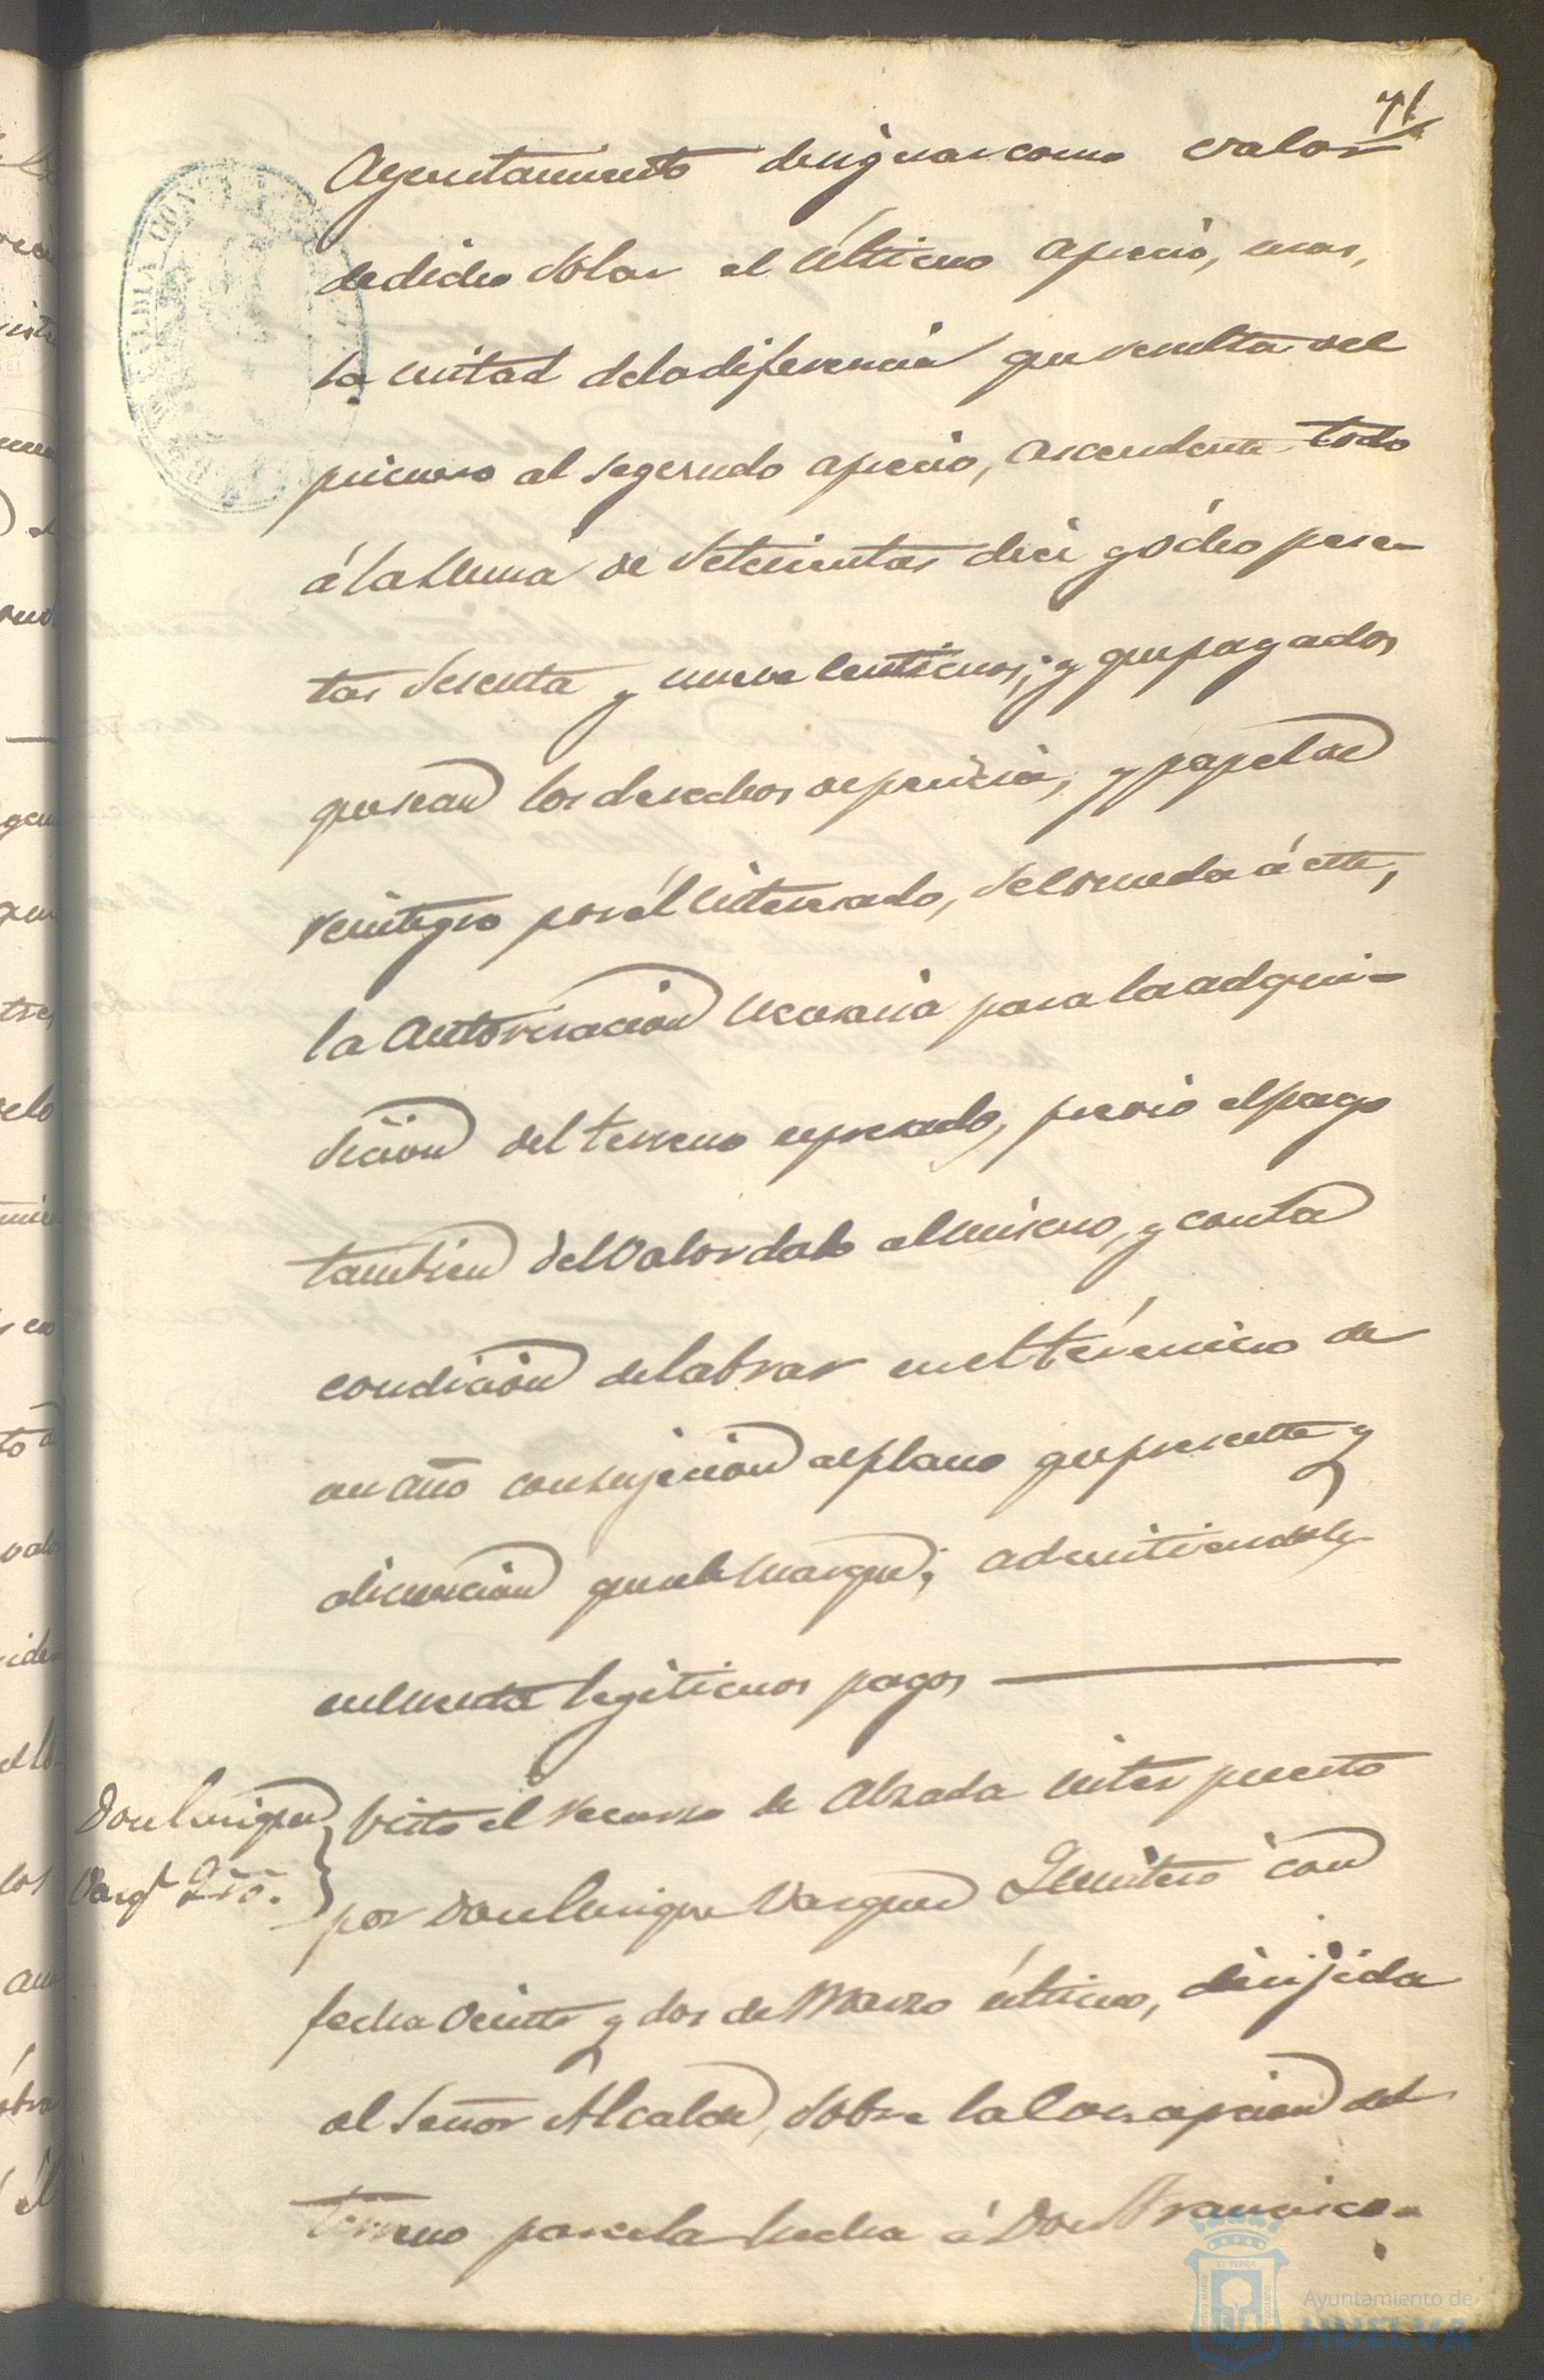 71
Ayuntamiento designar como valor
de dicho Solar el último aprecio, mas,
la mitad de la diferencia que resulta del
primero al segundo aprecio, ascendente todo
á la suma de Setecientas diez y ócho pese-
tas Sesenta y nueve centimos; y que pagados
que sean los derechos de pericia, y papel de
reintegro por él interesado, Se conceda á este,
la Autorización necesaria para la adqui-
sición del terreno expresado, previo el pago
tambien del valor dado al mismo, y con la
condición de labrar en el término de
un año con sujecion al plano que presente y
alineacion que se le marque; admitiendole
en cuenta legitimos pagos
Don Enrique
Vazqz Qro.
Visto el recurso de Alzada interpuesto
por Don Enrique Vazquez Quintero con
fecha Veinte y dos de Marzo último, dirijida
al Señor Alcalde, Sobre la Concepcion del
terreno parcela hecha á Don Francisco
Ayuntamiento de
HUELVA